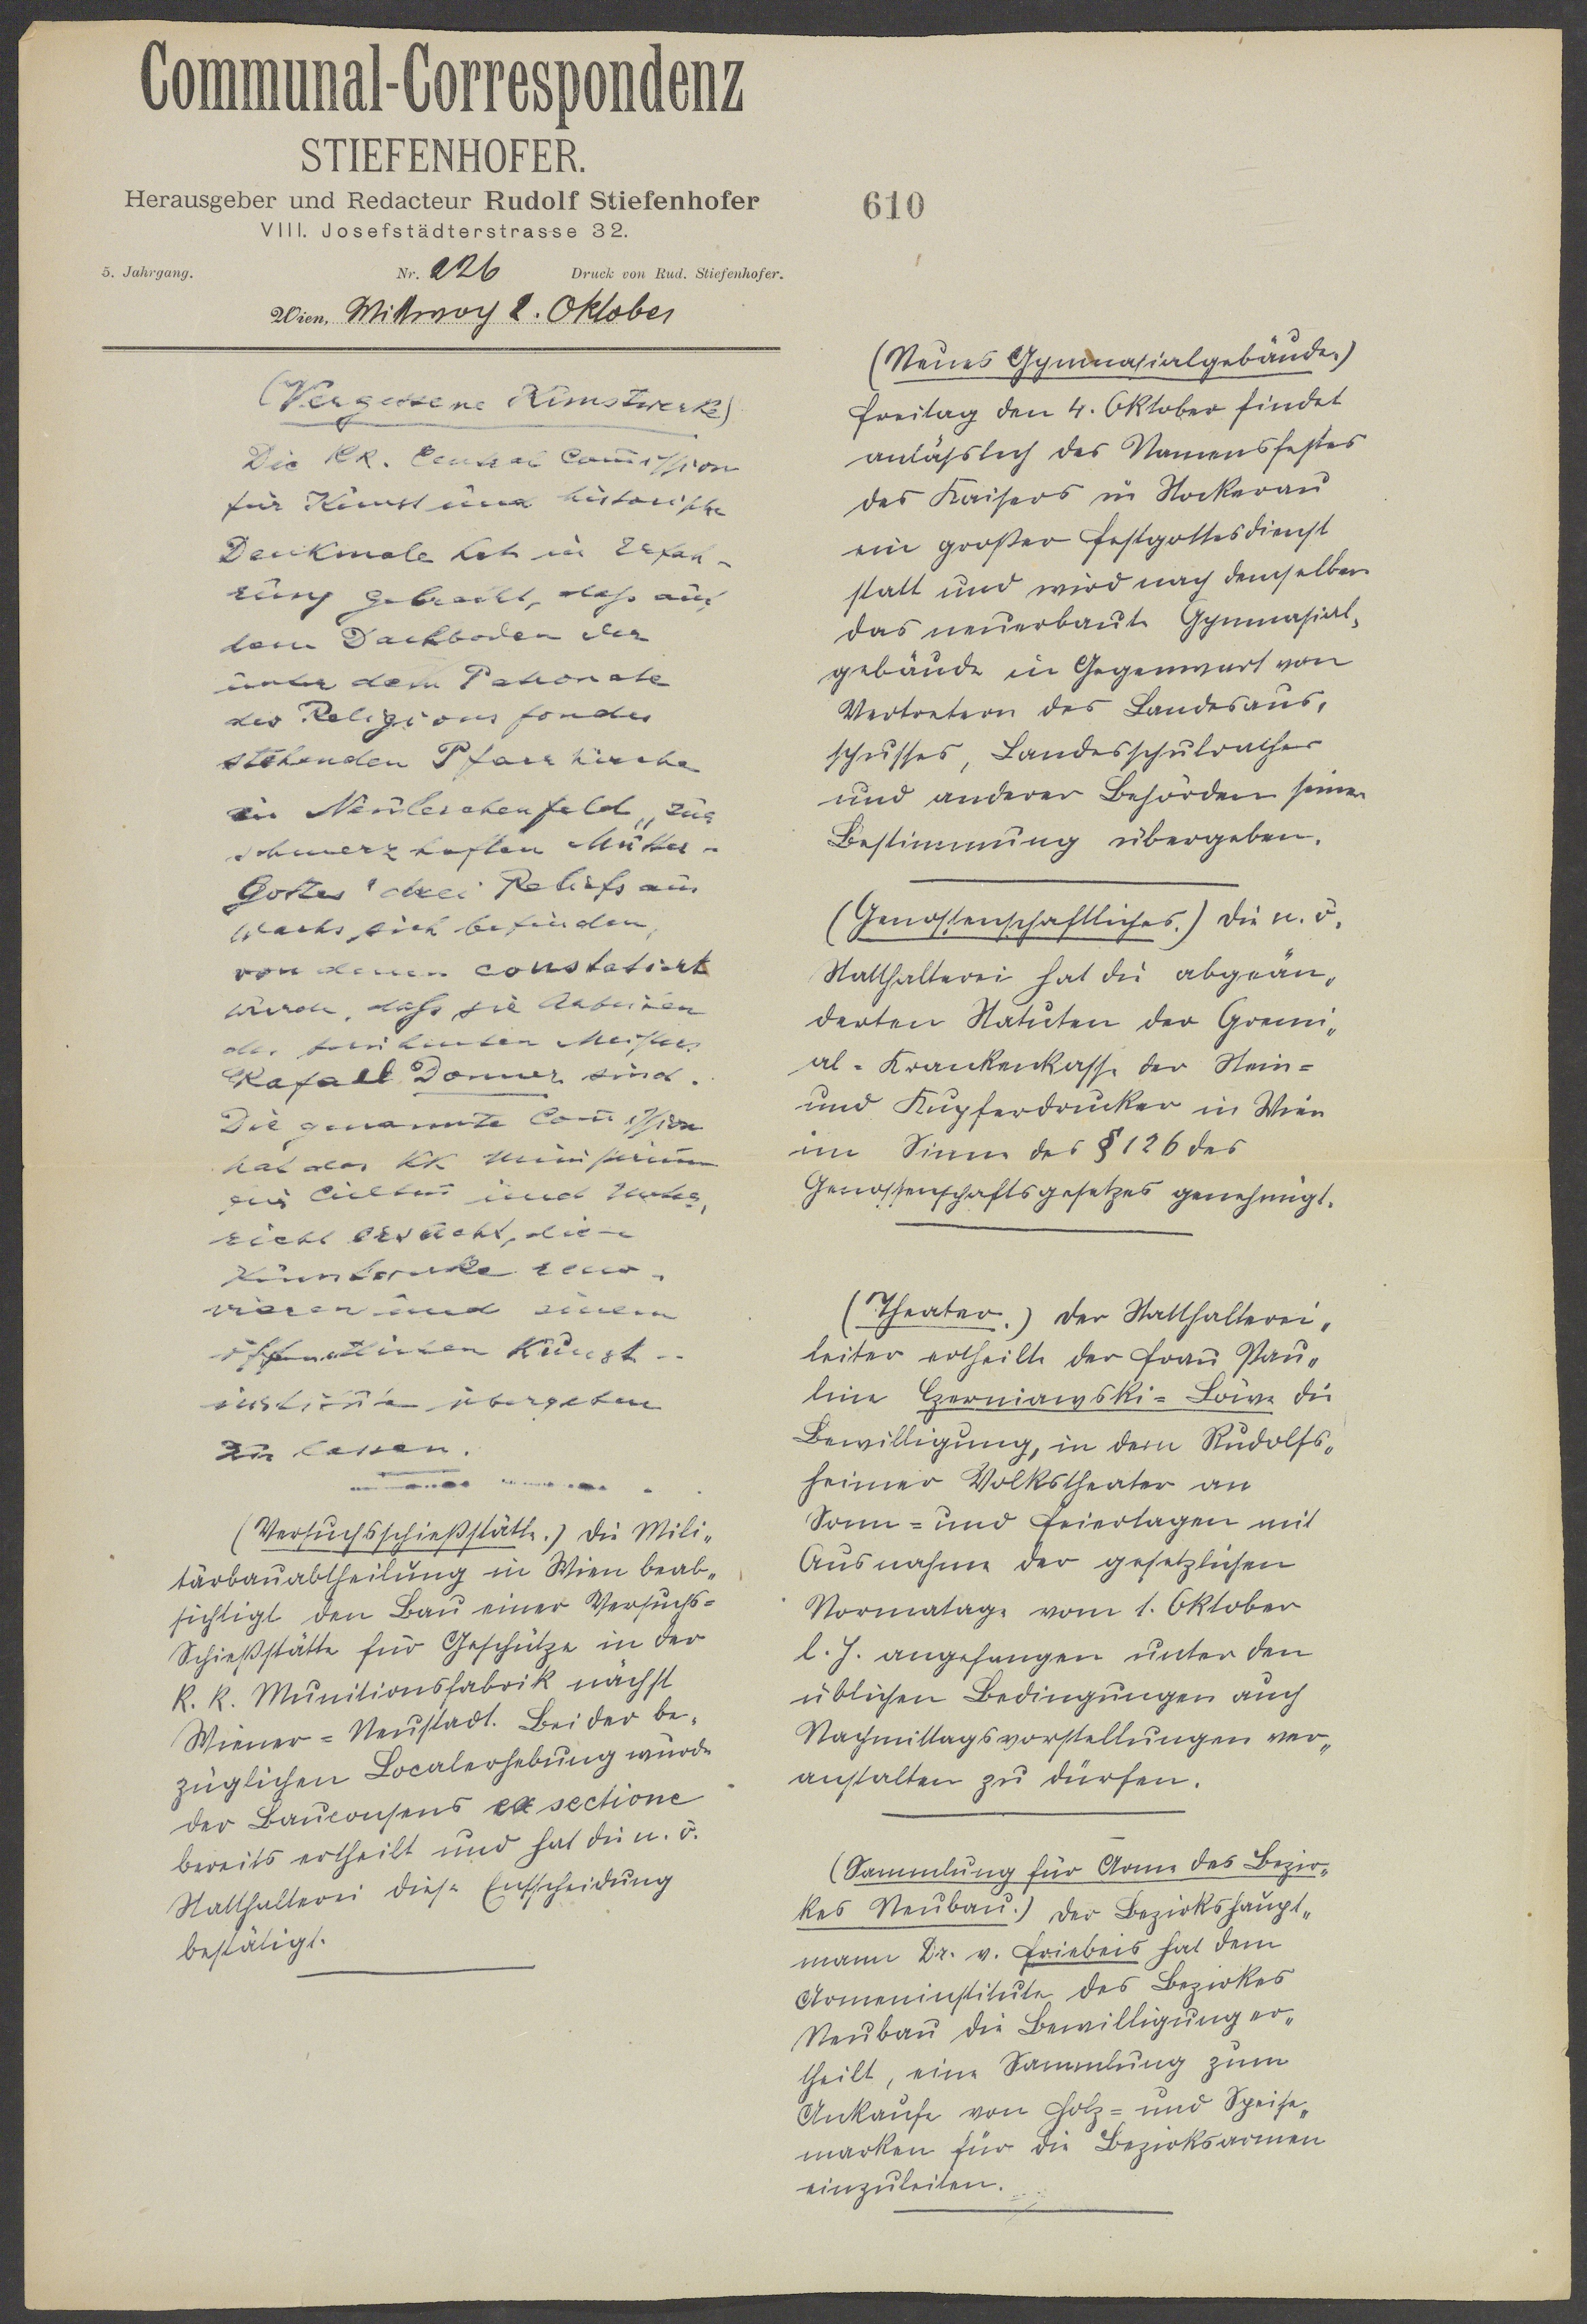 Communal-Correspondenz
STIEFENHOFER.
Herausgeber und Redacteur Rudolf Stiefenhofer
VIII. Josefstädterstrasse 32.
5. Jahrgang. Nr. 226 Druck von Rud. Stiefenhofer.
Wien, Mittwoch 2. Oktober
(Vergessene Kunstwerke)
Die kk. Central Com̅ission
für Kunst und historische
Denkmale hat in Erfah-
rung gebracht, daß auf
dem Dachboden der
unter dem Patronate
des Religionsfondes
stehenden Pfarrkirche
in Neulerchenfeld „zur
schmerzhaften Mutter-
Gottes" drei Reliefs aus
Wachs sich befinden,
von denen constatiert
wurde, daß sie Arbeiten
des berühmten Meisters
Rafael Donner sind.
Die genannte Com̅ission
hat das kk Ministerium
für Cultus und Unter-
richt ersucht, diese
Kunstwerke reno-
vieren und einem
öffentlichen Kunst-
institute übergeben
zu lassen.
(Versuchsschießstätte.) Die Mili-
tärbauabtheilung in Wien beab-
sichtigt den Bau einer Versuchs-
Schießstätte für Geschütze in der
k. k. Munitionsfabrik nächst
Wiener-Neustadt. Bei der be-
züglichen Localerhebung wurde
der Bauconsens ex sectione
bereits ertheilt und hat die n. ö.
Statthalterei diese Entscheidung
bestätigt.
610
(Neues Gymnasialgebäude.)
Freitag den 4. Oktober findet
anläßlich des Namensfestes
des Kaisers in Stockerau
ein großer Festgottesdienst
statt und wird nach demselben
das neuerbaute Gymnasial-
gebäude in Gegenwart von
Vertretern des Landesaus-
schusses, Landesschulrathes
und anderer Behörden seiner
Bestimmung übergeben.
(Genossenschaftliches.) Die n. ö.
Statthalterei hat die abgeän-
derten Statuten der Gremi-
al-Krankenkasse der Stein-
und Kupferdrucker in Wien
im Sinne des § 126 des
Genossenschaftsgesetzes genehmigt.
(Theater.) Der Statthalterei-
leiter ertheilte der Frau Pau-
line Czerniawski-Löwe die
Bewilligung, in dem Rudolfs-
heimer Volkstheater an
Sonn- und Feiertagen mit
Ausnahme der gesetzlichen
Normatage vom 1. Oktober
l. J. angefangen unter den
üblichen Bedingungen auch
Nachmittagsvorstellungen ver-
anstalten zu dürfen.
(Sammlung für Arme des Bezir-
kes Neubau.) Der Bezirkshaupt-
mann Dr. v. Friebeis hat dem
Armeninstitute des Bezirkes
Neubau die Bewilligung er-
theilt, eine Sammlung zum
Ankaufe von Holz- und Speise-
marken für die Bezirksarmen
einzuleiten.